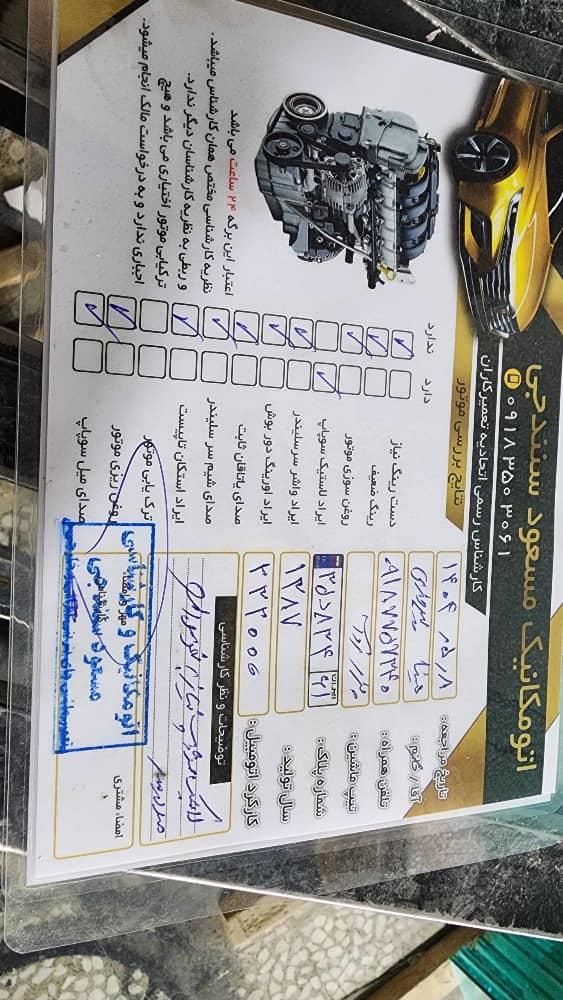 اتومکانیک مسعود سنندجی
۰۹۱۸۳۵۰۳۰۶۱
کارشناس رسمی اتحادیه تعمیرکاران
نتایج بررسی موتور
تاریخ مراجعه:
آقا / خانم:
تلفن همراه:
تیپ ماشین:
شماره پلاک:
سال تولید: ۱۳۸۷
کارکرد اتومبیل: ۲۳۳۰۰۰
توضیحات و نظر کارشناسی
ندارد
دارد
دست رینگ نیاز
رینگ ضعیف
روغن سوزی موتور
ایراد لاستیک سوپاپ
ایراد واشر سرسیلندر
ایراد اورینگ دور بوش
صدای یاتاقان ثابت
صدای شیم سر سیلندر
ایراد استکان تایپیت
ترک یابی موتور
روغن ریزی موتور
صدای میل سوپاپ
اعتبار این برگه ۲۴ ساعت می باشد
نظریه کارشناسی مختص همان کارشناس میباشد.
و ربطی به نظریه کارشناسان دیگر ندارد.
ترکیابی موتور اختیاری می باشد و هیچ
اجباری ندارد و به درخواست مالک انجام میشود.
امضاء مشتری
اتومکانیک و کارشناسی
مسعود سنندجی